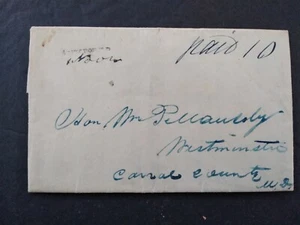 paid 10
Hon Wm P Maulsby
Westminster
Carroll County
Md